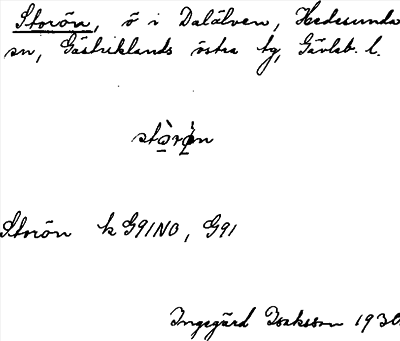 Storön, ö i Dalälven, Hedesunda
sn, Gästriklands östra tg, Gävleb. l.
stò̱rö̱́n
Storön k G91NO, G91
Ingegärd Isaksson 1930